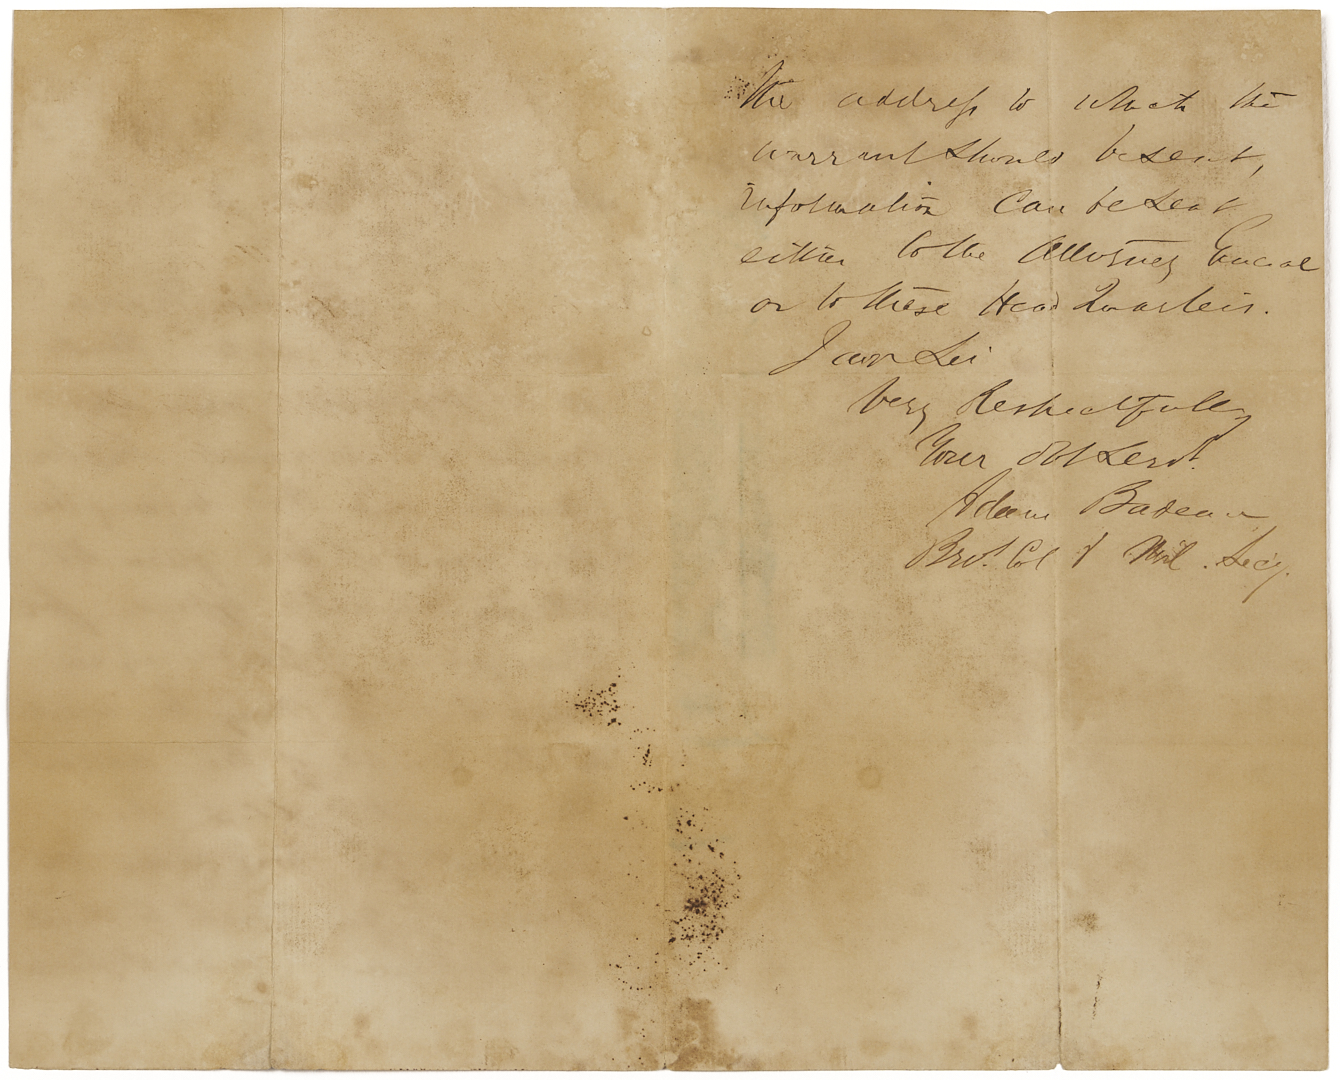 the address to which the
warrant should be sent,
Information can be sent
either to the Attorney General
or to these Head Quarters.
I am Sir
Very Respectfully
Your Obt Servt.
Adam Badeau
Bvt. Col & Mil. Secy.